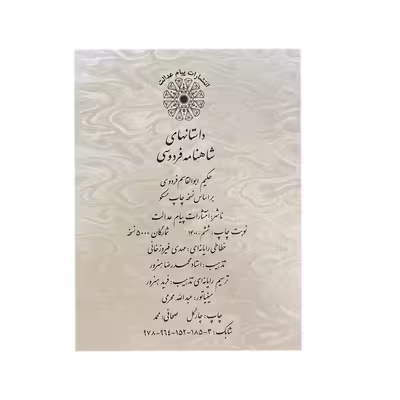 انتشارات پیام عدالت
داستانهای
شاهنامه فردوسی
حکیم ابوالقاسم فردوسی
بر اساس نسخه چاپ مسکو
ناشر: انتشارات پیام عدالت
نوبت چاپ: ششم ۱۴۰۰ شمارگان ۵۰۰۰ نسخه
خطاطی رایانه‌ای: مهدی فیروزخانی
تذهیب: استاد محمدرضا هنرور
ترسیم رایانه‌ای تذهیب: فرید هنرور
مینیاتور: عبدالله محرمی
چاپ: چارگل صحافی: محمد
شابک: ۳-۱۸۵-۱۵۲-۹۶۴-۹۷۸